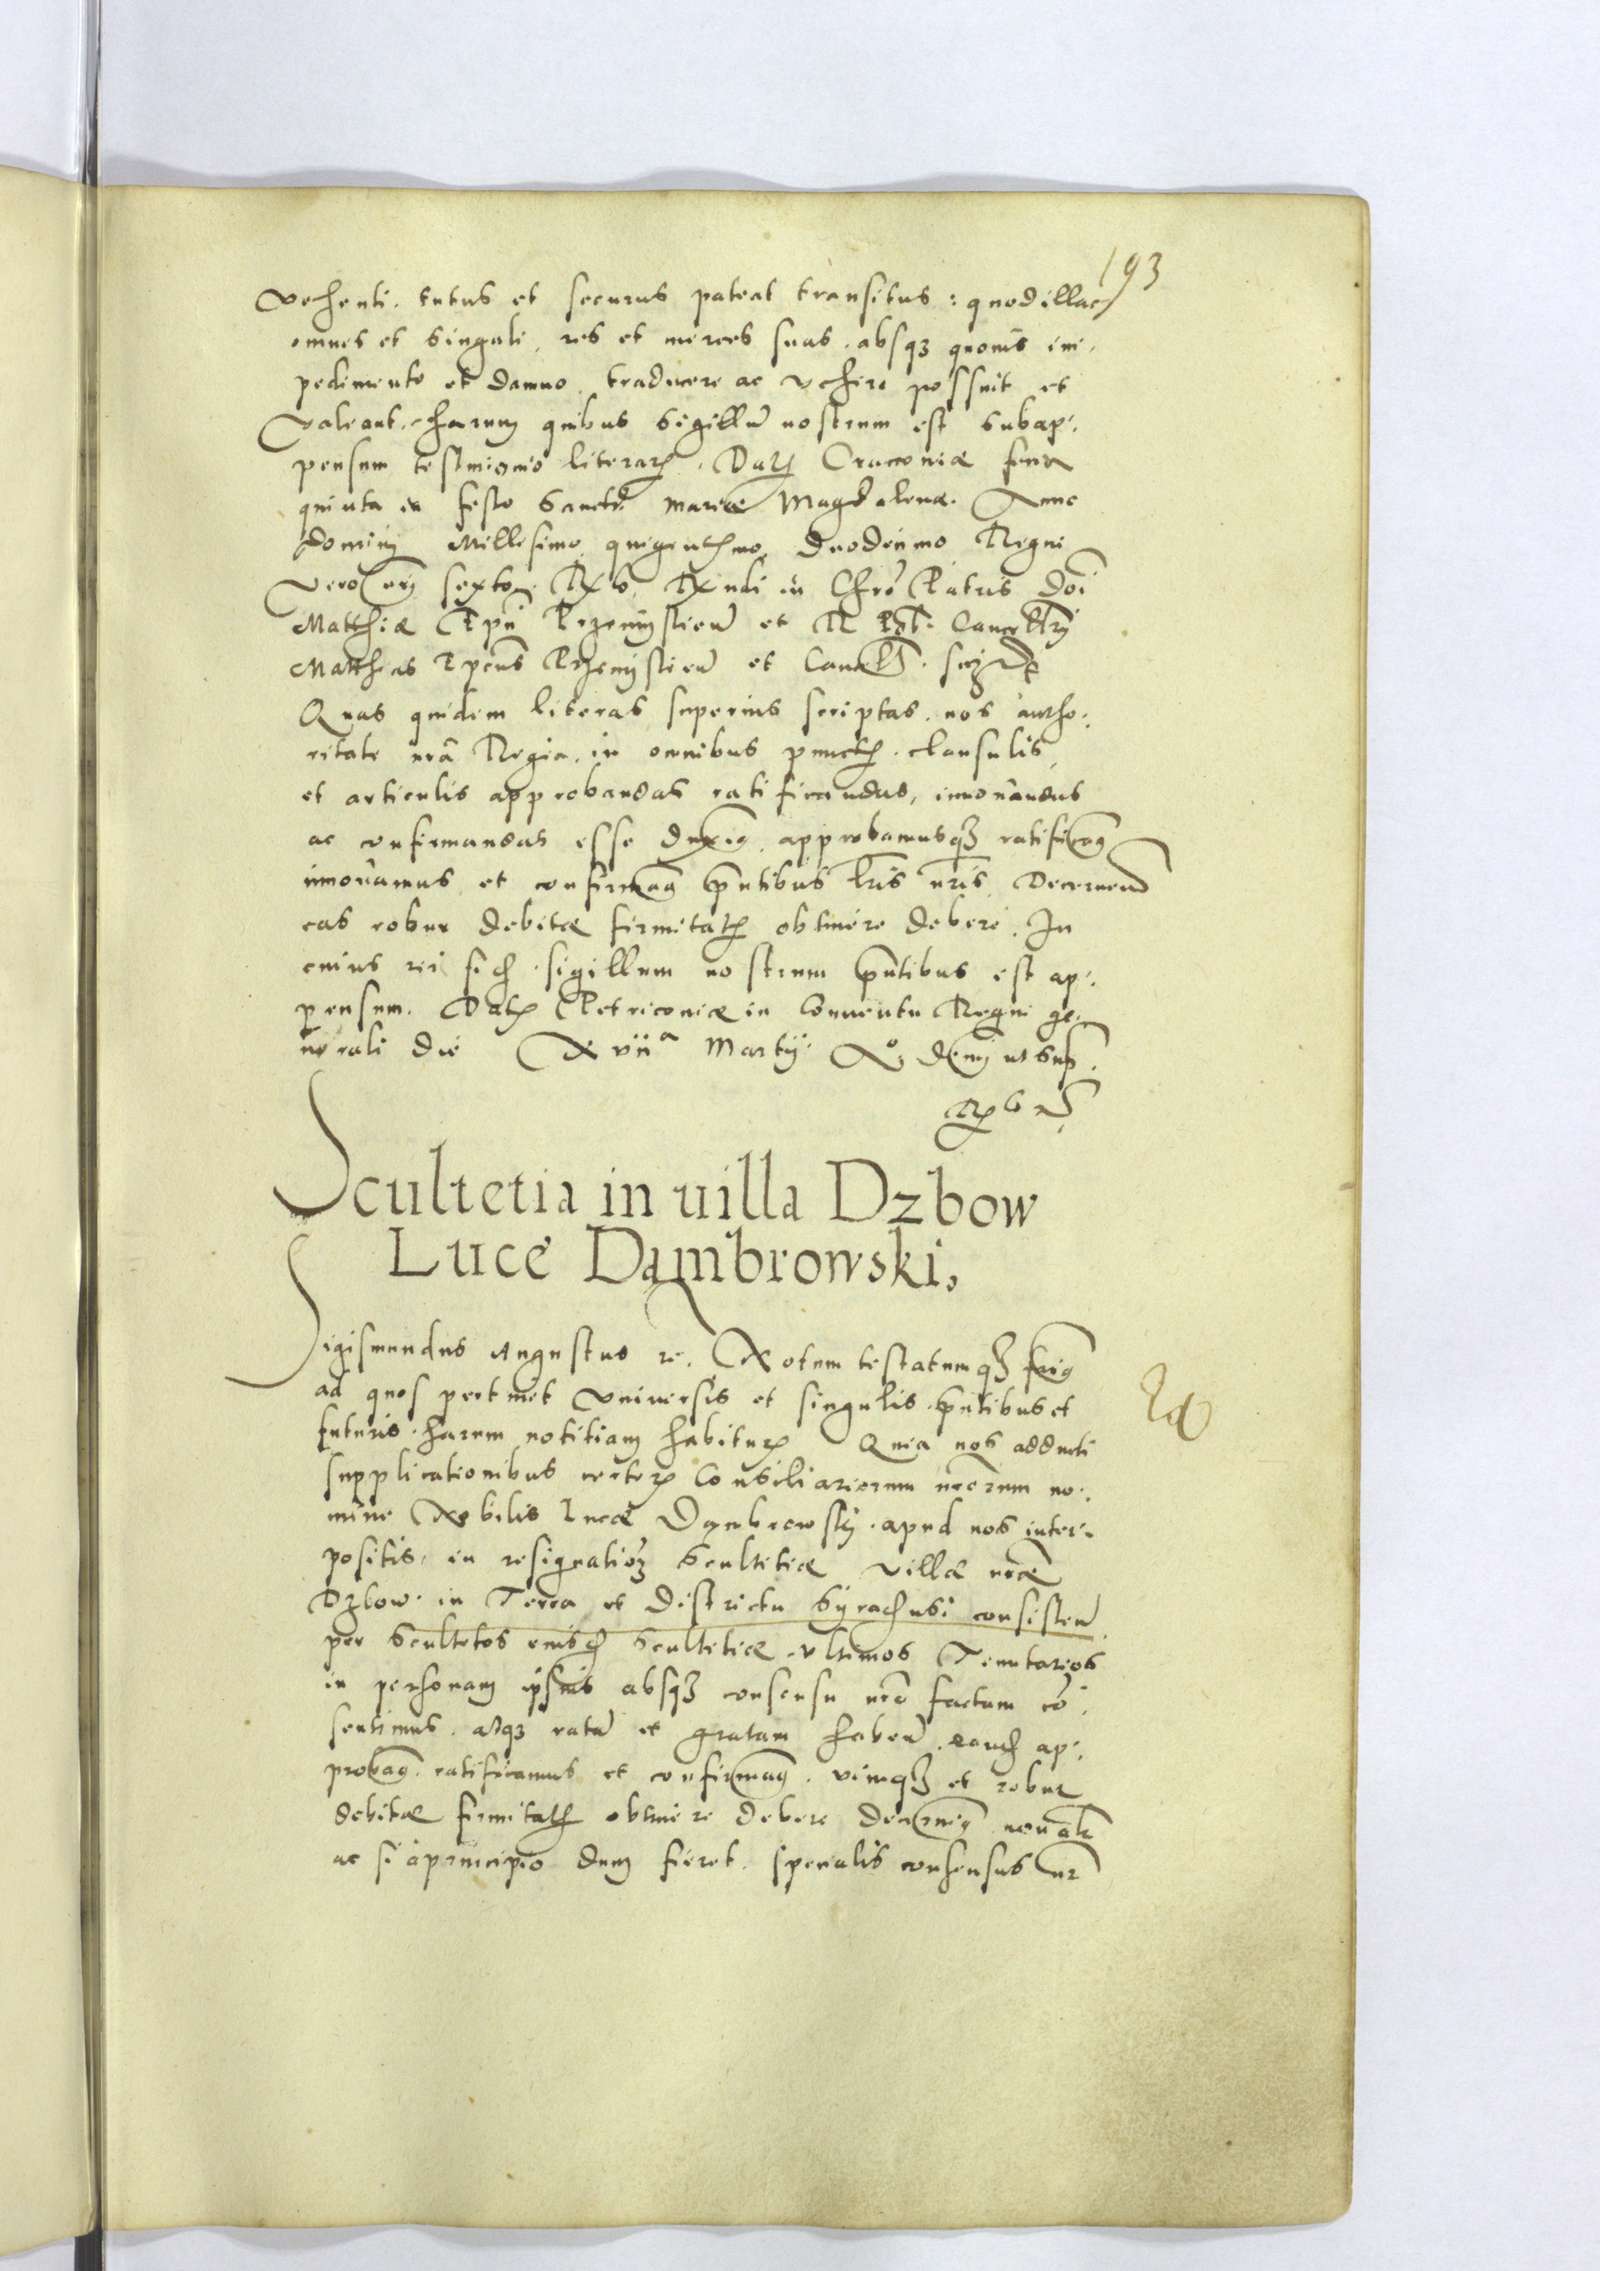 193
vehenti. tutus et securus pateat transitus: quod illac
omnes et singuli, res et merces suas. absqз quouis im-
pedimento et damno. traducere ac vehere possint et
valeant. harum quibus sigillū nostrum est subap-
pensum testimonio literarꝝ. Datꝝ Cracouiæ feria
quinta in festo Sanctæ Mariæ Magdalenæ. Anno
Domini Millesimo quingentꝭmo duodecimo Regni
vero nrj sexto. Rndi in Chrō Patris Dnī
Matthiæ Epī Przemyslien̄ et R Pol. Cancellrij
Matthias Epūs Przemyslien̄ et Cancell. sczsst
Quas quidem literas superius scriptas. nos autho-
ritate nrā Regia. in omnibus punctꝭ. clausulis,
et articulis approbandas ratificandas, innouandas
ac confirmandas esse duximꝯ. approbamusqз ratificamꝯ
innouamus et confirmamꝯ pntibus lris nris. Decernen̄
eas robur debitæ firmitatꝭ obtinere debere. In
cuius rei fidē. sigillum nostrum pntibus est ap-
pensum. Datꝭ Petricouiæ in Conuentu Regni ge-
nerali die Xviiᵃ Martij. Aᵒ Dnj ut supꝭ.
Scultetia in uilla Dzbow
Luce Dąmbrowski.
Sigismundus Augustus rē. Notum testatumqз facimꝯ
ad quos pertinet vniuersis et singulis. pntibus et
futuris. harum notitiam habiturꝭ Quia nos adducti
supplicationibus certorꝝ Consiliariorum nrorum no-
mine Nobilis Lucæ Dąmbrowskij. apud nos inter-
positis. in resignationē Scultetiæ villæ nræ
Dzbow. in Terra et Districtu Syrachusi consisten̄
per Scultetos eiusdē Scultetiæ. vltimos Tenutarios
in personam ipsius absqз consensu nrō factam cō-
sentimus. atqз ratā et gratam haben̄. eandē ap-
probamꝯ. ratificamus et confirmamꝯ. vimqз et robur
debitæ firmitatꝭ obtinere debere decernimꝯ non alr
ac si a principio dum fieret. specialis consensus nr